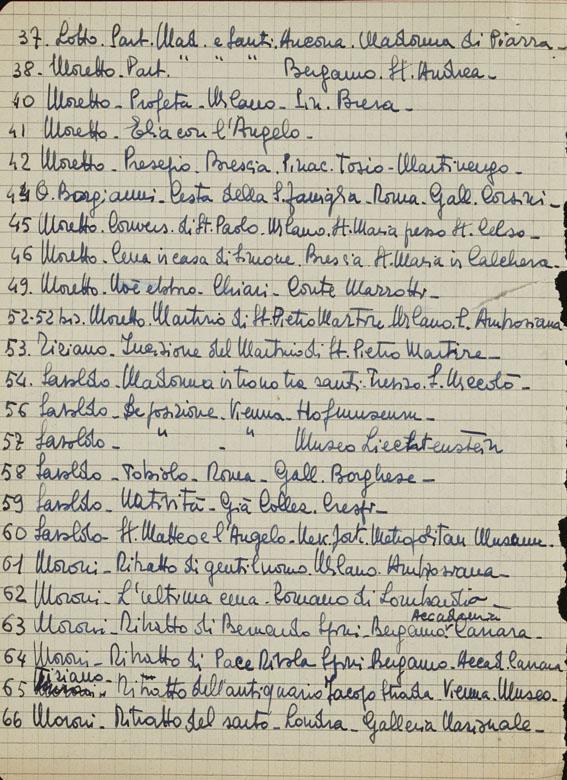 37. Lotto. Part. Mad. e Santi. Ancona. Madonna di Piazza -
38. Moretto. Part. " " " Bergamo. St. Andrea -
40 Moretto - Profeta - Milano - Pin. Brera -
41 Moretto - Elia con l'Angelo -
42 Moretto - Presepio - Brescia. Pinac. Tosio - Martinengo -
44 O. Borgianni - Cesta della S. famiglia - Roma - Gall. Corsini -
45 Moretto. Convers. di St. Paolo. Milano. St. Maria presso St. Celso -
46 Moretto - Cena in casa di Simone. Brescia. St. Maria in Calchera -
49. Moretto - Noè ebbro. Chiari - Conte Mazzotti -
52-52 bis. Moretto. Martirio di St. Pietro Martire. Milano. P. Ambrosiana
53. Tiziano. Incisione del Martirio di St. Pietro Martire -
54. Savoldo - Madonna in trono tra santi. Treviso. S. Niccolò -
56 Savoldo - Deposizione. Vienna - Hofmuseum -
57 Savoldo - " - " Museo Liechtenstein
58 Savoldo - Tobiolo - Roma - Gall. Borghese -
59 Savoldo - Natività - Già Collez. Crespi -
60 Savoldo - St. Matteo e l'Angelo - New York. Metropolitan Museum.
61 Moroni - Ritratto di gentiluomo. Milano. Ambrosiana -
62 Moroni - L'ultima cena - Romano di Lombardia -
63 Moroni - Ritratto di Bernardo Spini Bergamo. Accademia Carrara -
64 Moroni - Ritratto di Pace Rivola Spini Bergamo - Accad. Carrara
65 Tiziano - Ritratto dell'antiquario Jacopo Strada - Vienna. Museo -
66 Moroni - Ritratto del sarto - Londra - Galleria Nazionale -